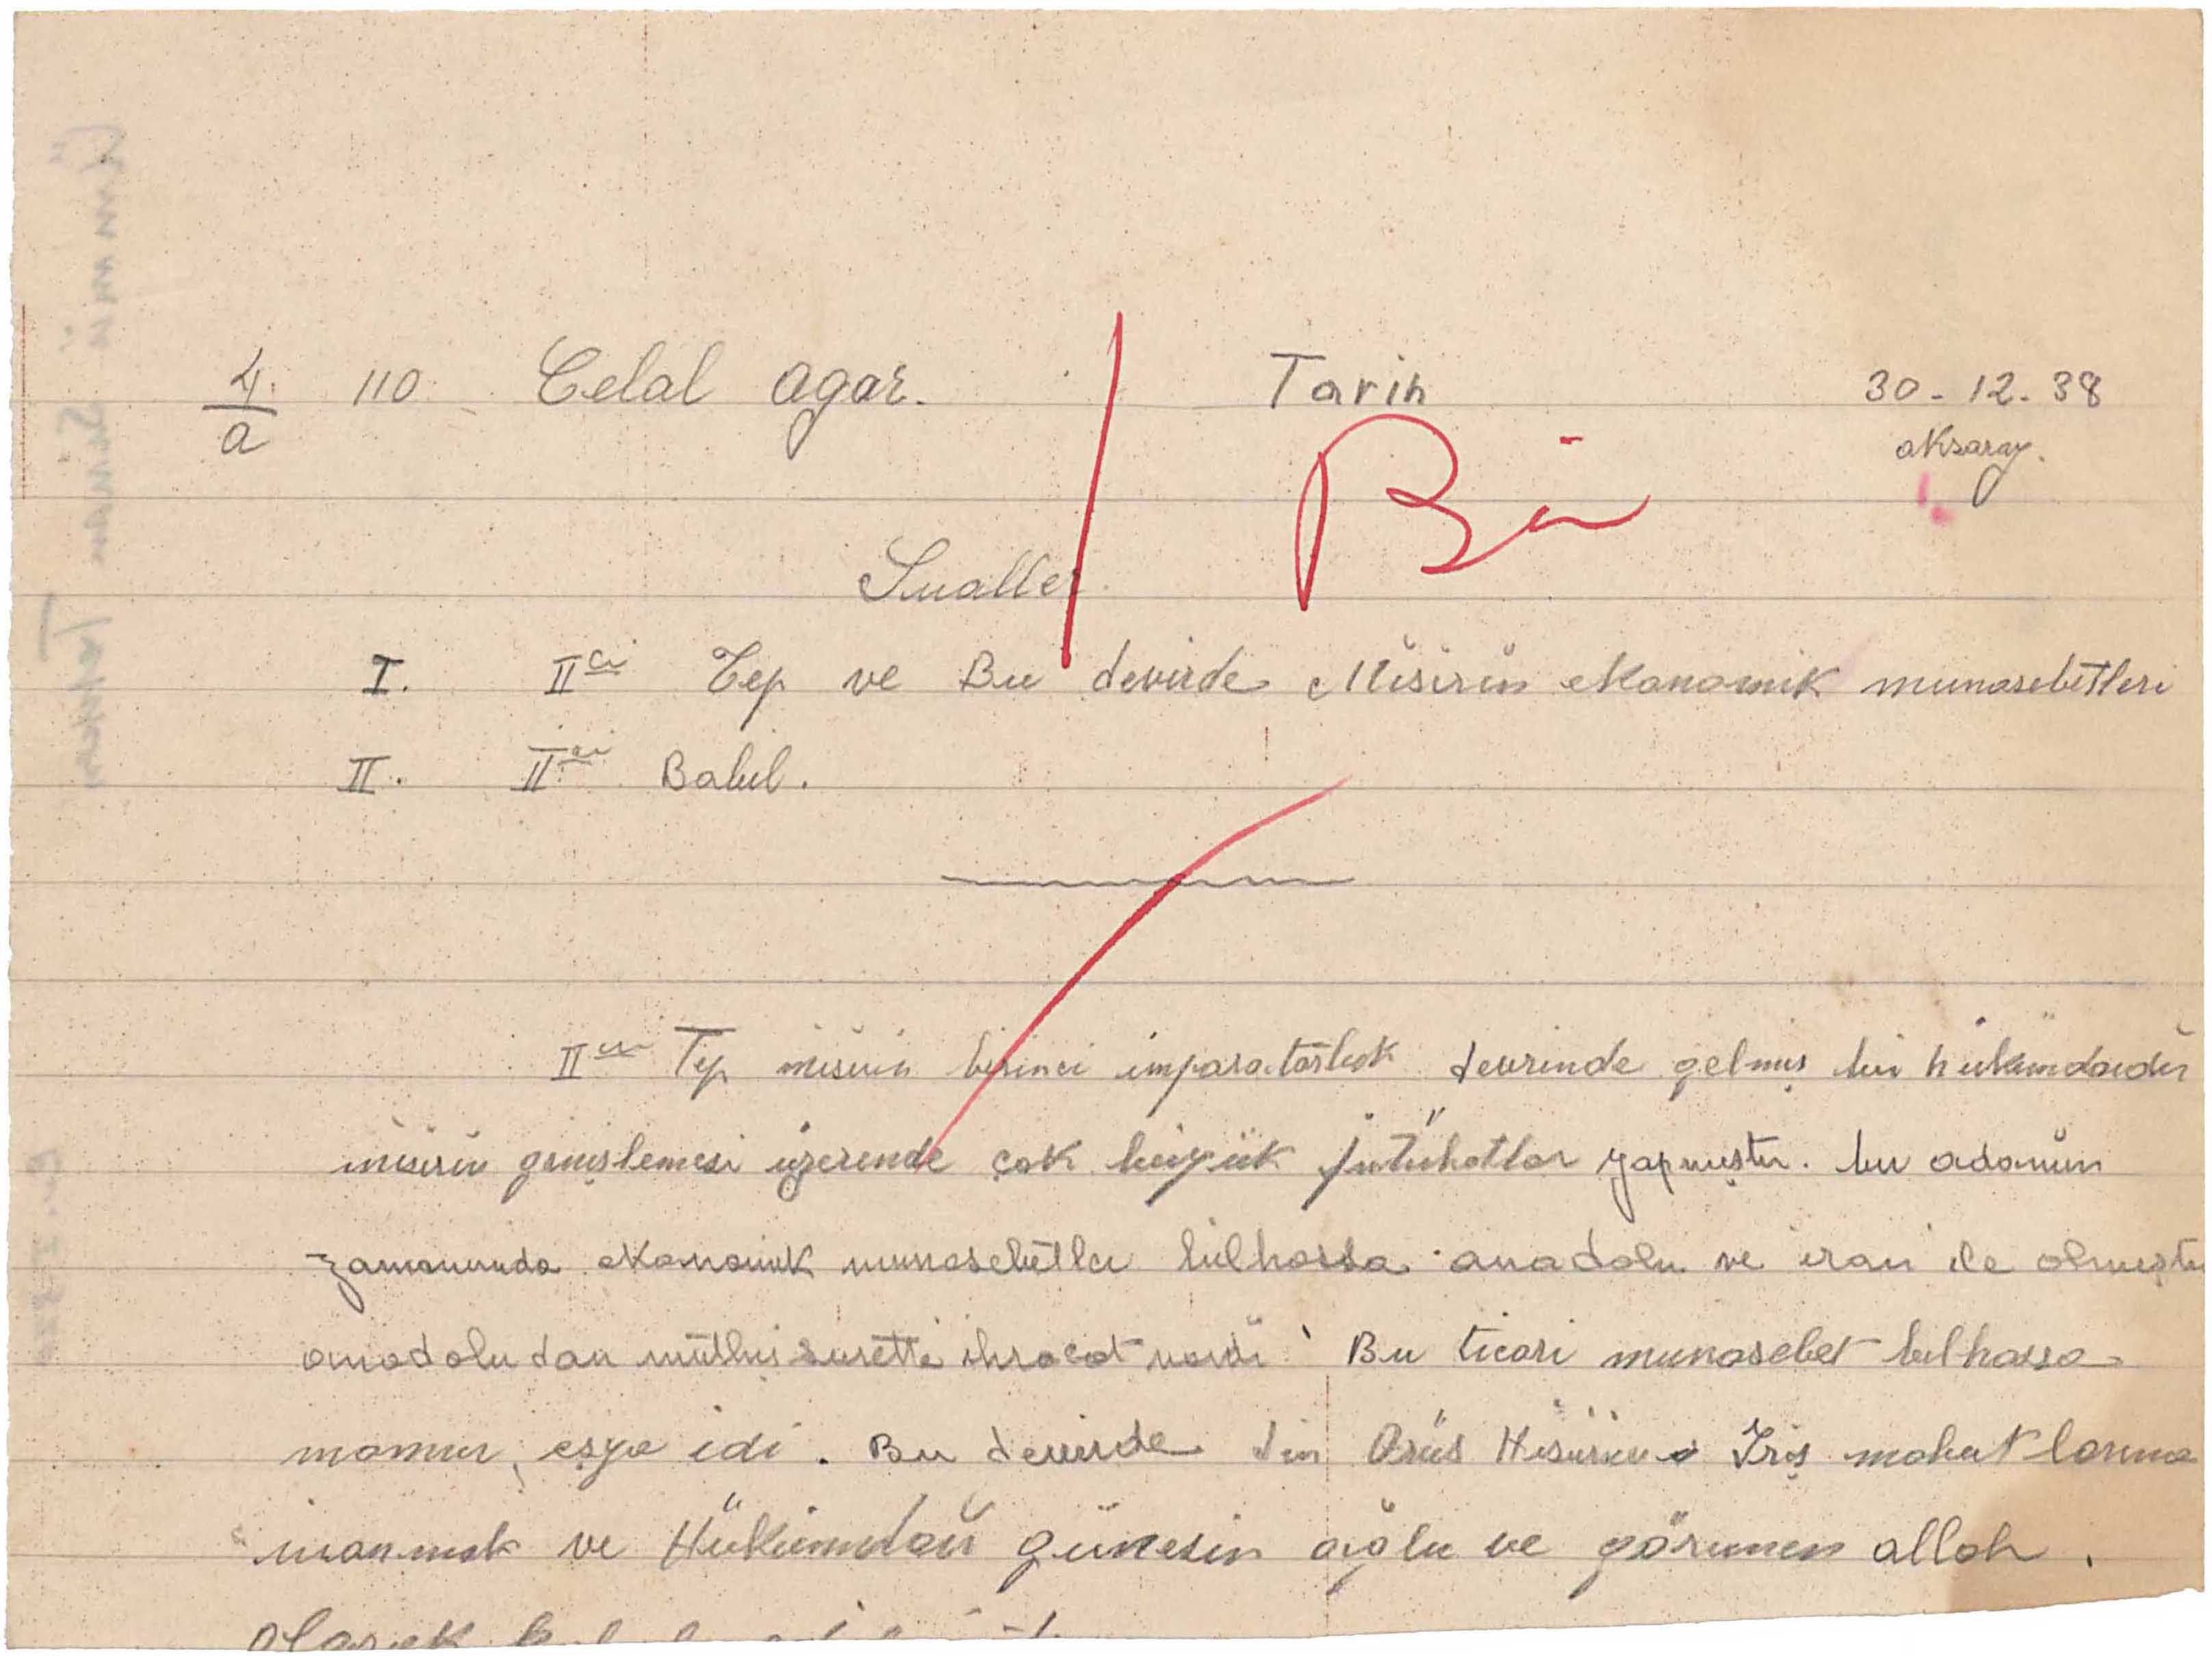 4/a 110 Celal agar. Tarih 30-12-38
aksaray.
Bir
Sualler
I. IIci Tep ve Bu devirde Mısırın ekonomik munasebetleri
II. IIci Babil.
IIci Tep mısırın birinci imparatorluk devrinde gelmiş bir hükümdardır
mısırın genişlemesi üzerende çok büyük fütühatlar yapmıştır. bu adamın
zamanında ekonomik munasebetler bilhassa anadolu ve iran ile olmuştu
anadoludan müthiş surette ihracat vardı Bu ticari munasebet bilhassa
mamur, eşya idi. Bu devirde din Oriis İris mabutlarına
inanmak ve Hükümdarı güneşin oğlu ve görünen allah.
olarak